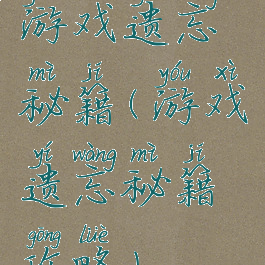 游戏遗忘
mì jí yóu xì
秘籍(游戏
yí wàng mì jí
遗忘秘籍
gōng lüè
攻略)